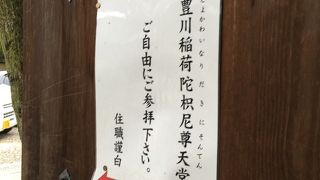 とよかわいなりだきにそんてん
豊川稲荷陀枳尼尊天堂
ご自由にご参拝下さい。
住職謹白